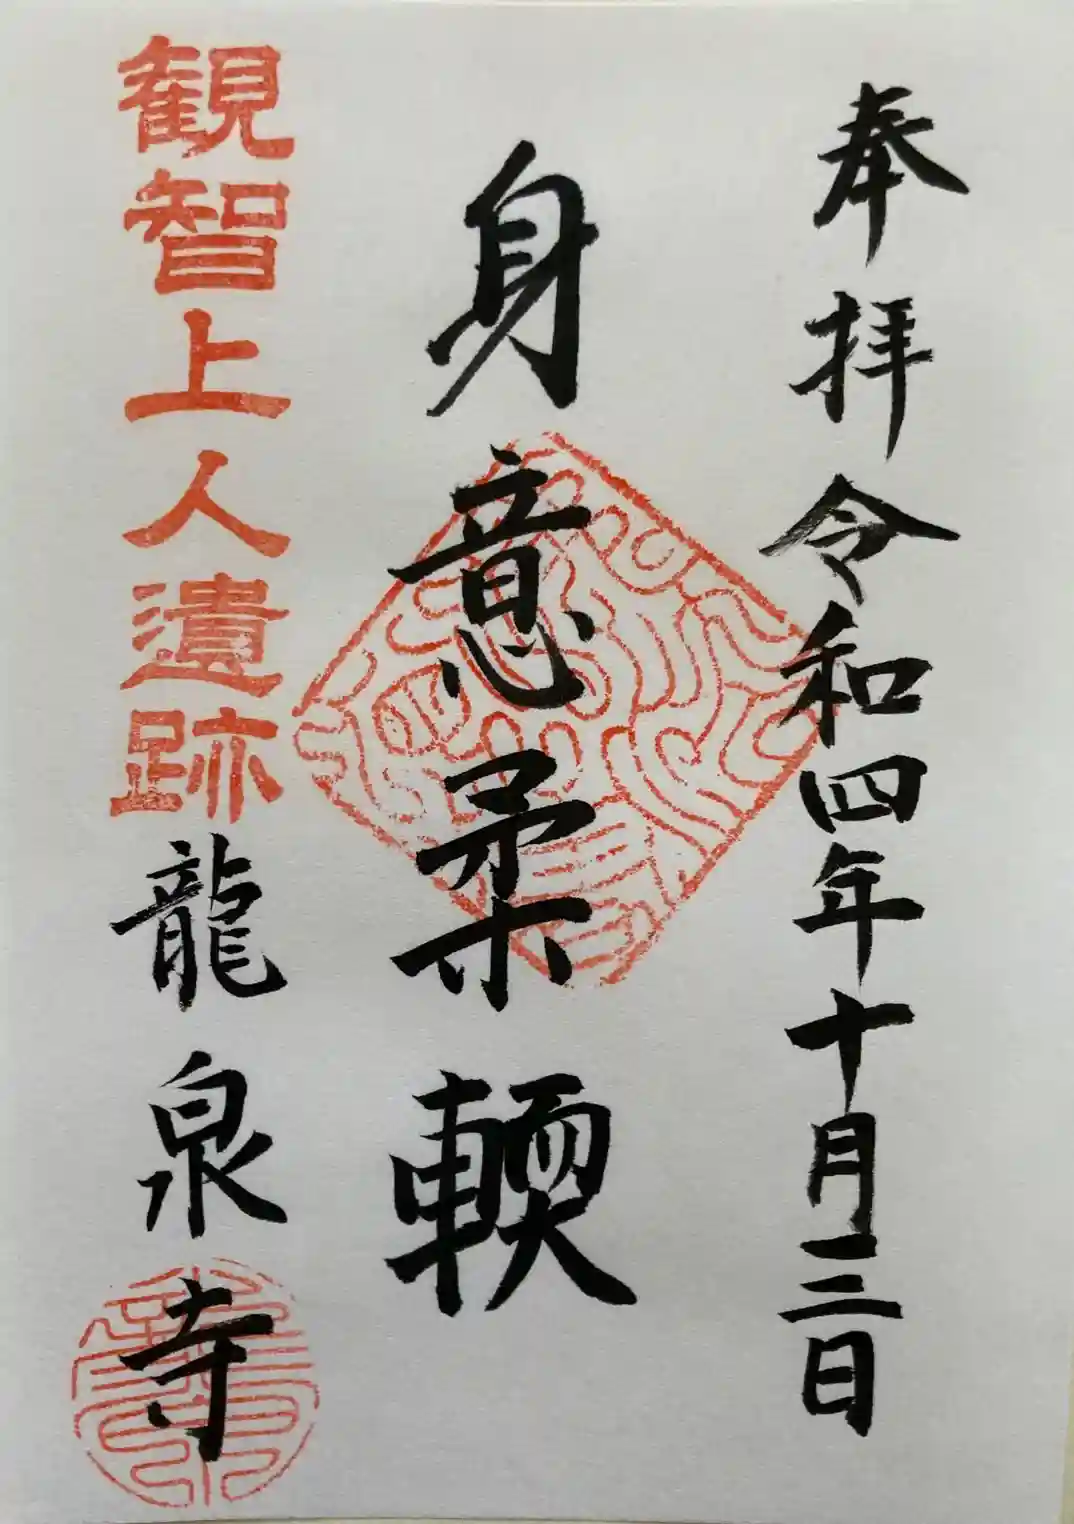 奉拝令和四年十月三日
身意柔輭
観智上人遺跡龍泉寺